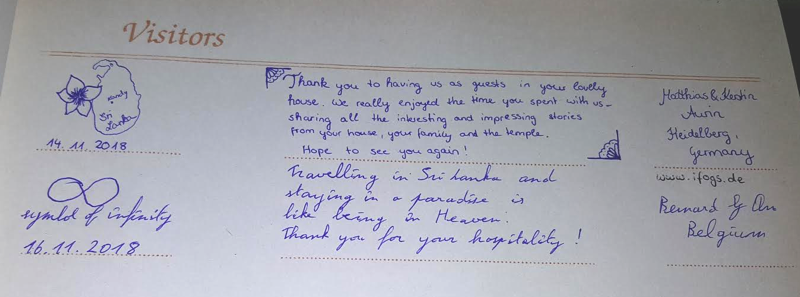 Visitors
Kandy
Sri
Lanka
14.11.2018
Thank you to having us as guests in your lovely
house. We really enjoyed the time you spent with us -
sharing all the interesting and impressing stories
from your house, your family and the temple.
Hope to see you again!
Matthias & Kerstin
Heidelberg,
Germany
www.ifogs.de
symbol of infinity
16.11.2018
Travelling in Sri Lanka and
staying in a paradise is
like being in Heaven.
Thank you for your hospitality!
& An
Belgium